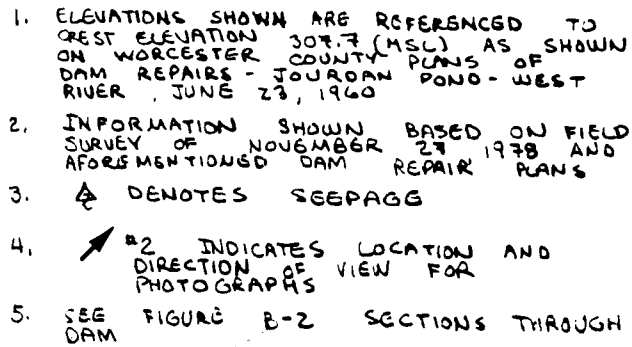 1. ELEVATIONS SHOWN ARE REFERENCED TO
CREST ELEVATION 307.7 (MSL) AS SHOWN
ON WORCESTER COUNTY PLANS OF
DAM REPAIRS - JOURDAN POND - WEST
RIVER, JUNE 23, 1960
2. INFORMATION SHOWN BASED ON FIELD
SURVEY OF NOVEMBER 27 1978 AND
AFOREMENTIONED DAM REPAIR PLANS
3. DENOTES SEEPAGE
4. #2 INDICATES LOCATION AND
DIRECTION OF VIEW FOR
PHOTOGRAPHS
5. SEE FIGURE B-2 SECTIONS THROUGH
DAM